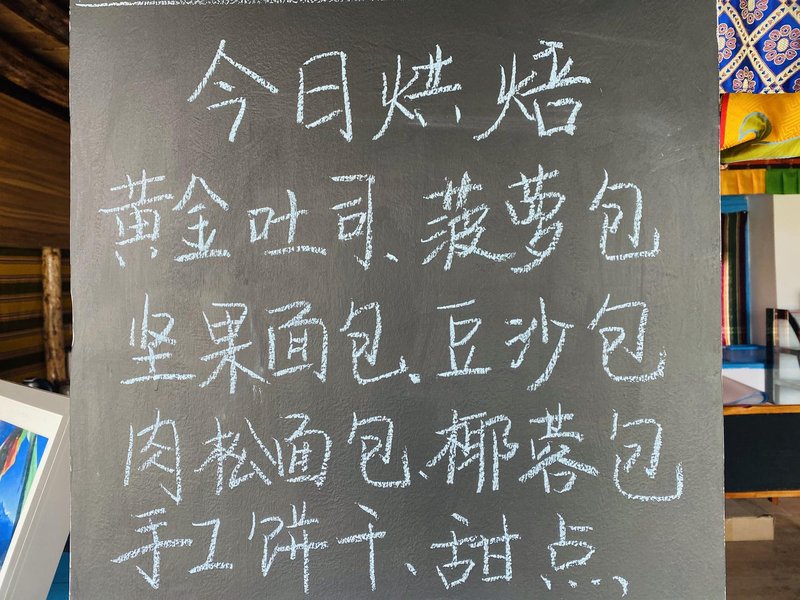 今日烘焙
黄金吐司、菠萝包
坚果面包、豆沙包
肉松面包、椰蓉包
手工饼干、甜点、